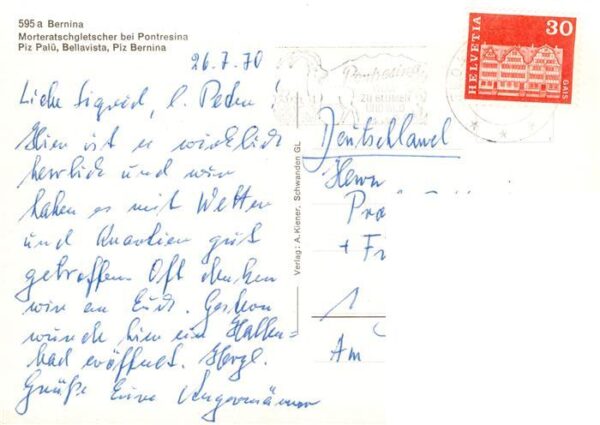 595 a Bernina
Morteratschgletscher bei Pontresina
Piz Palü, Bellavista, Piz Bernina
26.7.70
Liebe Sigrid, l. Peter!
Hier ist es wirklich
herrlich und wir
haben es mit Wetter
und Quartier gut
getroffen. Oft denken
wir an Euch. Gestern
wurde hier ein Hallen-
bad eröffnet. Herzl.
Grüße Eure
Verlag: A. Kiener, Schwanden GL
Pontresina
HELVETIA
30
GAIS
Deutschland
Herrn
+
1
Am